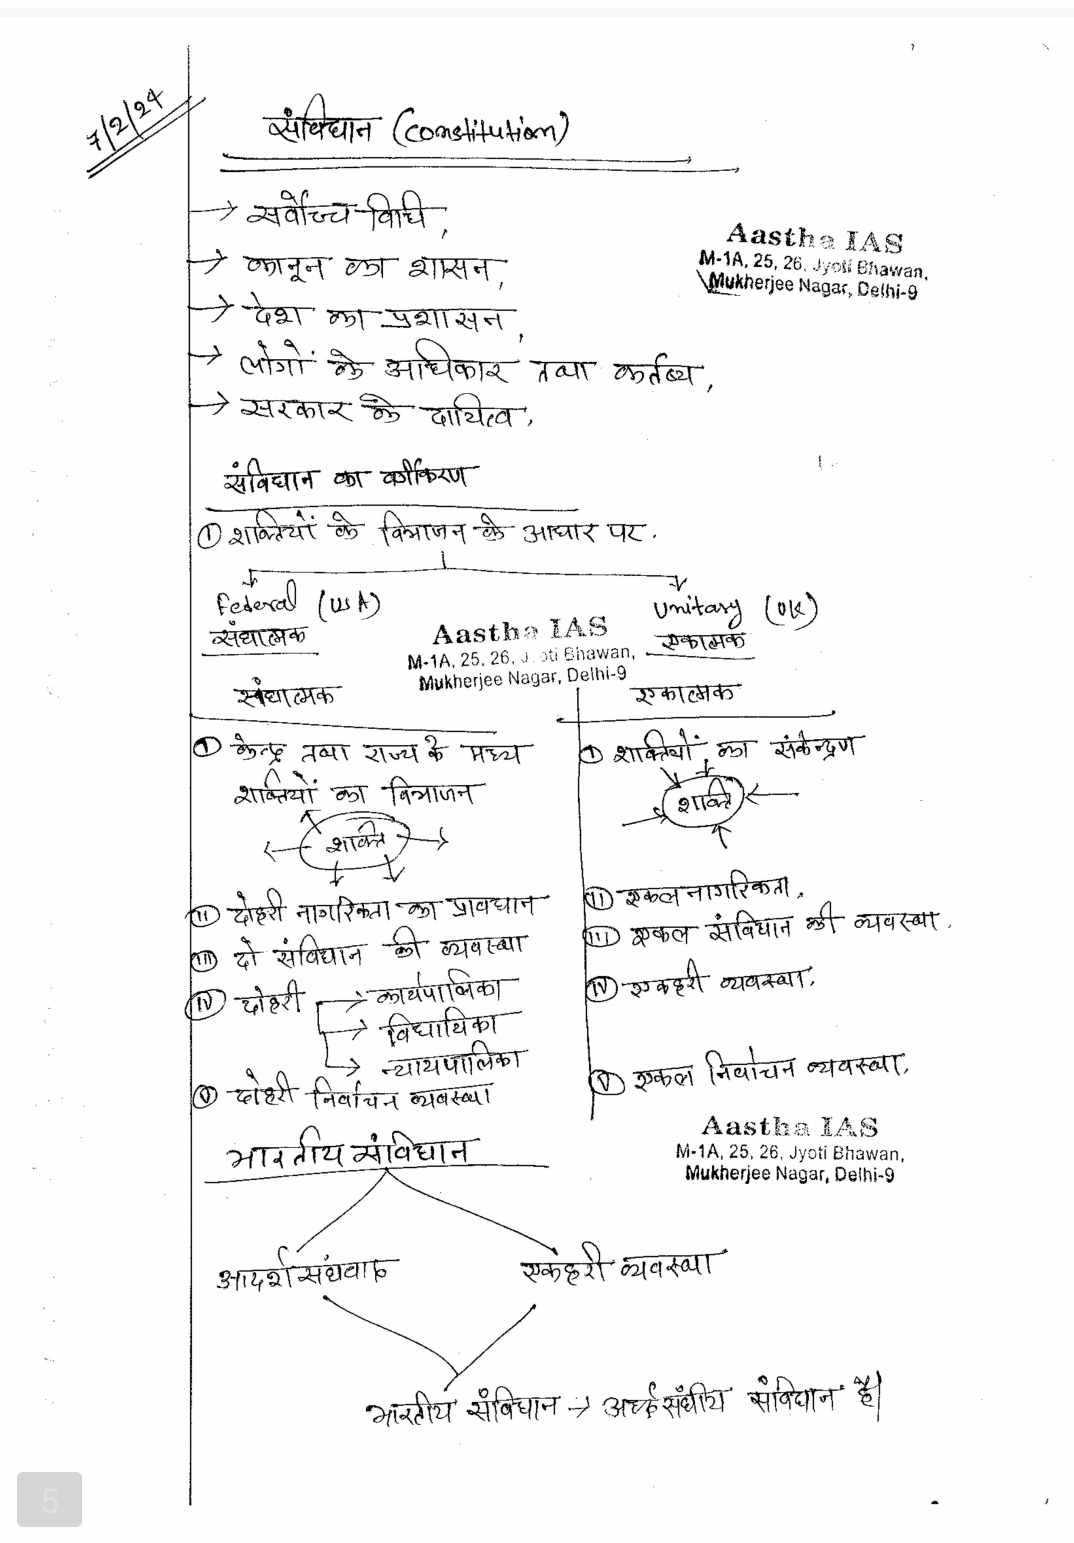 7/2/24
संविधान (Constitution)
→ सर्वोच्च विधि,
→ कानून का शासन,
→ देश का प्रशासन,
→ लोगों के अधिकार तथा कर्तव्य,
→ सरकार के दायित्व,
Aastha IAS
M-1A, 25, 26, Jyoti Bhawan,
Mukherjee Nagar, Delhi-9
संविधान का वर्गीकरण
① शक्तियों के विभाजन के आधार पर.
Federal (USA)
संघात्मक
Unitary (UK)
एकात्मक
Aastha IAS
M-1A, 25, 26, Jyoti Bhawan,
Mukherjee Nagar, Delhi-9
संघात्मक
① केन्द्र तथा राज्य के मध्य
शक्तियों का विभाजन
शक्ति
(II) दोहरी नागरिकता का प्रावधान
(III) दो संविधान की व्यवस्था
(IV) दोहरी → कार्यपालिका
→ विधायिका
→ न्यायपालिका
(V) दोहरी निर्वाचन व्यवस्था
एकात्मक
① शक्तियों का संकेन्द्रण
शक्ति
(II) एकल नागरिकता,
(III) एकल संविधान की व्यवस्था.
(IV) एकहरी व्यवस्था,
(V) एकल निर्वाचन व्यवस्था,
Aastha IAS
M-1A, 25, 26, Jyoti Bhawan,
Mukherjee Nagar, Delhi-9
भारतीय संविधान
आदर्श संघवाद
एकहरी व्यवस्था
भारतीय संविधान → अर्द्धसंघीय संविधान है।
5